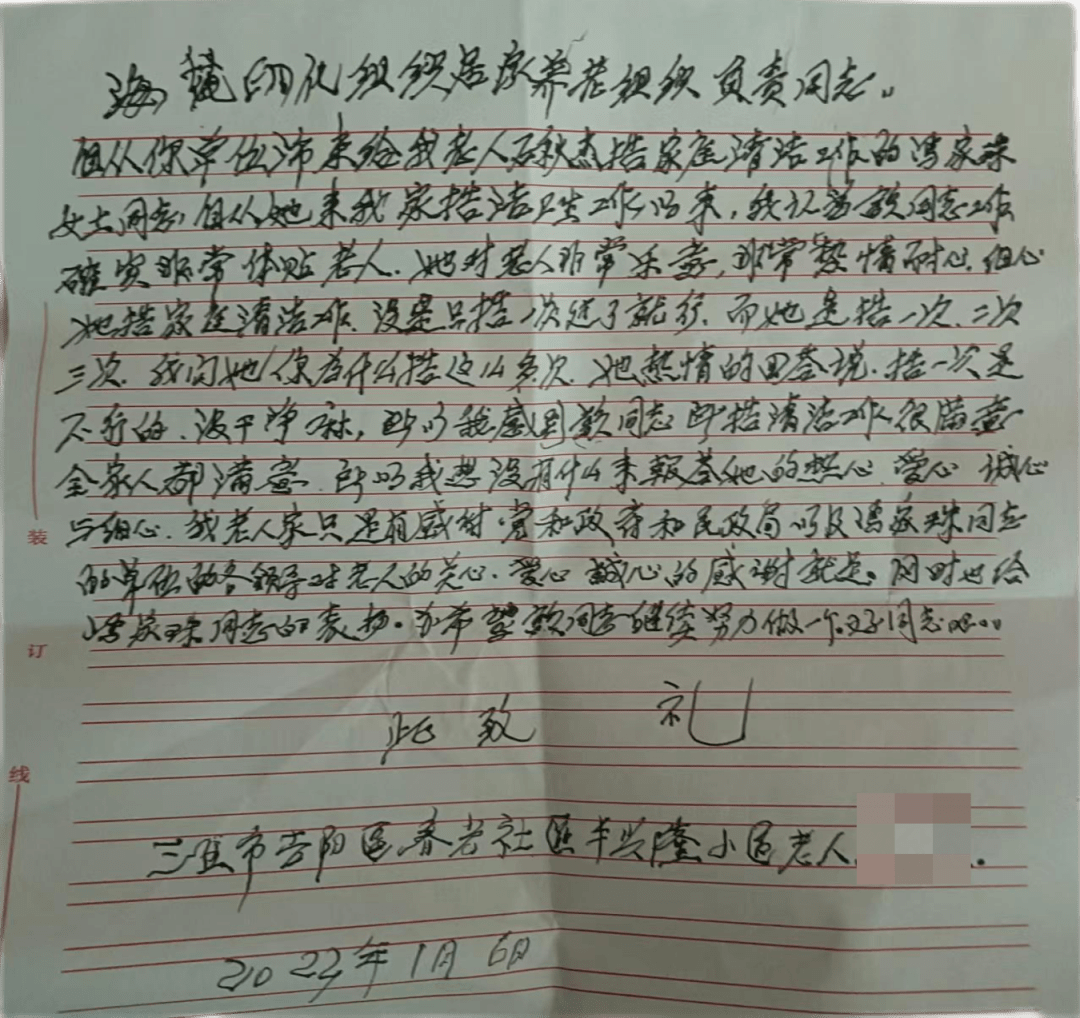 组织居家养老组织负责同志。
自从你单位派来给我老人石秋杰搞家庭清洁工作的冯家珠
女士同志,自从她来我家搞清洁卫生工作以来,我认为该同志工作
确实非常体贴老人.她对老人非常乐意,非常热情耐心.细心
她搞家庭清洁工作.没是只搞一次过了就行.而她是搞一次.二次
三次.我问她你为什么搞这么多次.她热情的回答说.搞一次是
不行的.没干净嘛,所以我感到该同志所搞清洁工作很满意
全家人都满意.所以我想没有什么来报答她的热心.爱心 诚心
与细心.我老人家只是有感谢党和政府和民政局以及冯家珠同志
的单位的各领导对老人的关心.爱心 诚心的感谢就是。同时也给
冯家珠同志的表扬。亦希望该同志继续努力做一个好同志
此致 礼
三亚市吉阳区春光社区丰兴隆小区老人.
2022年1月6日
装
订
线